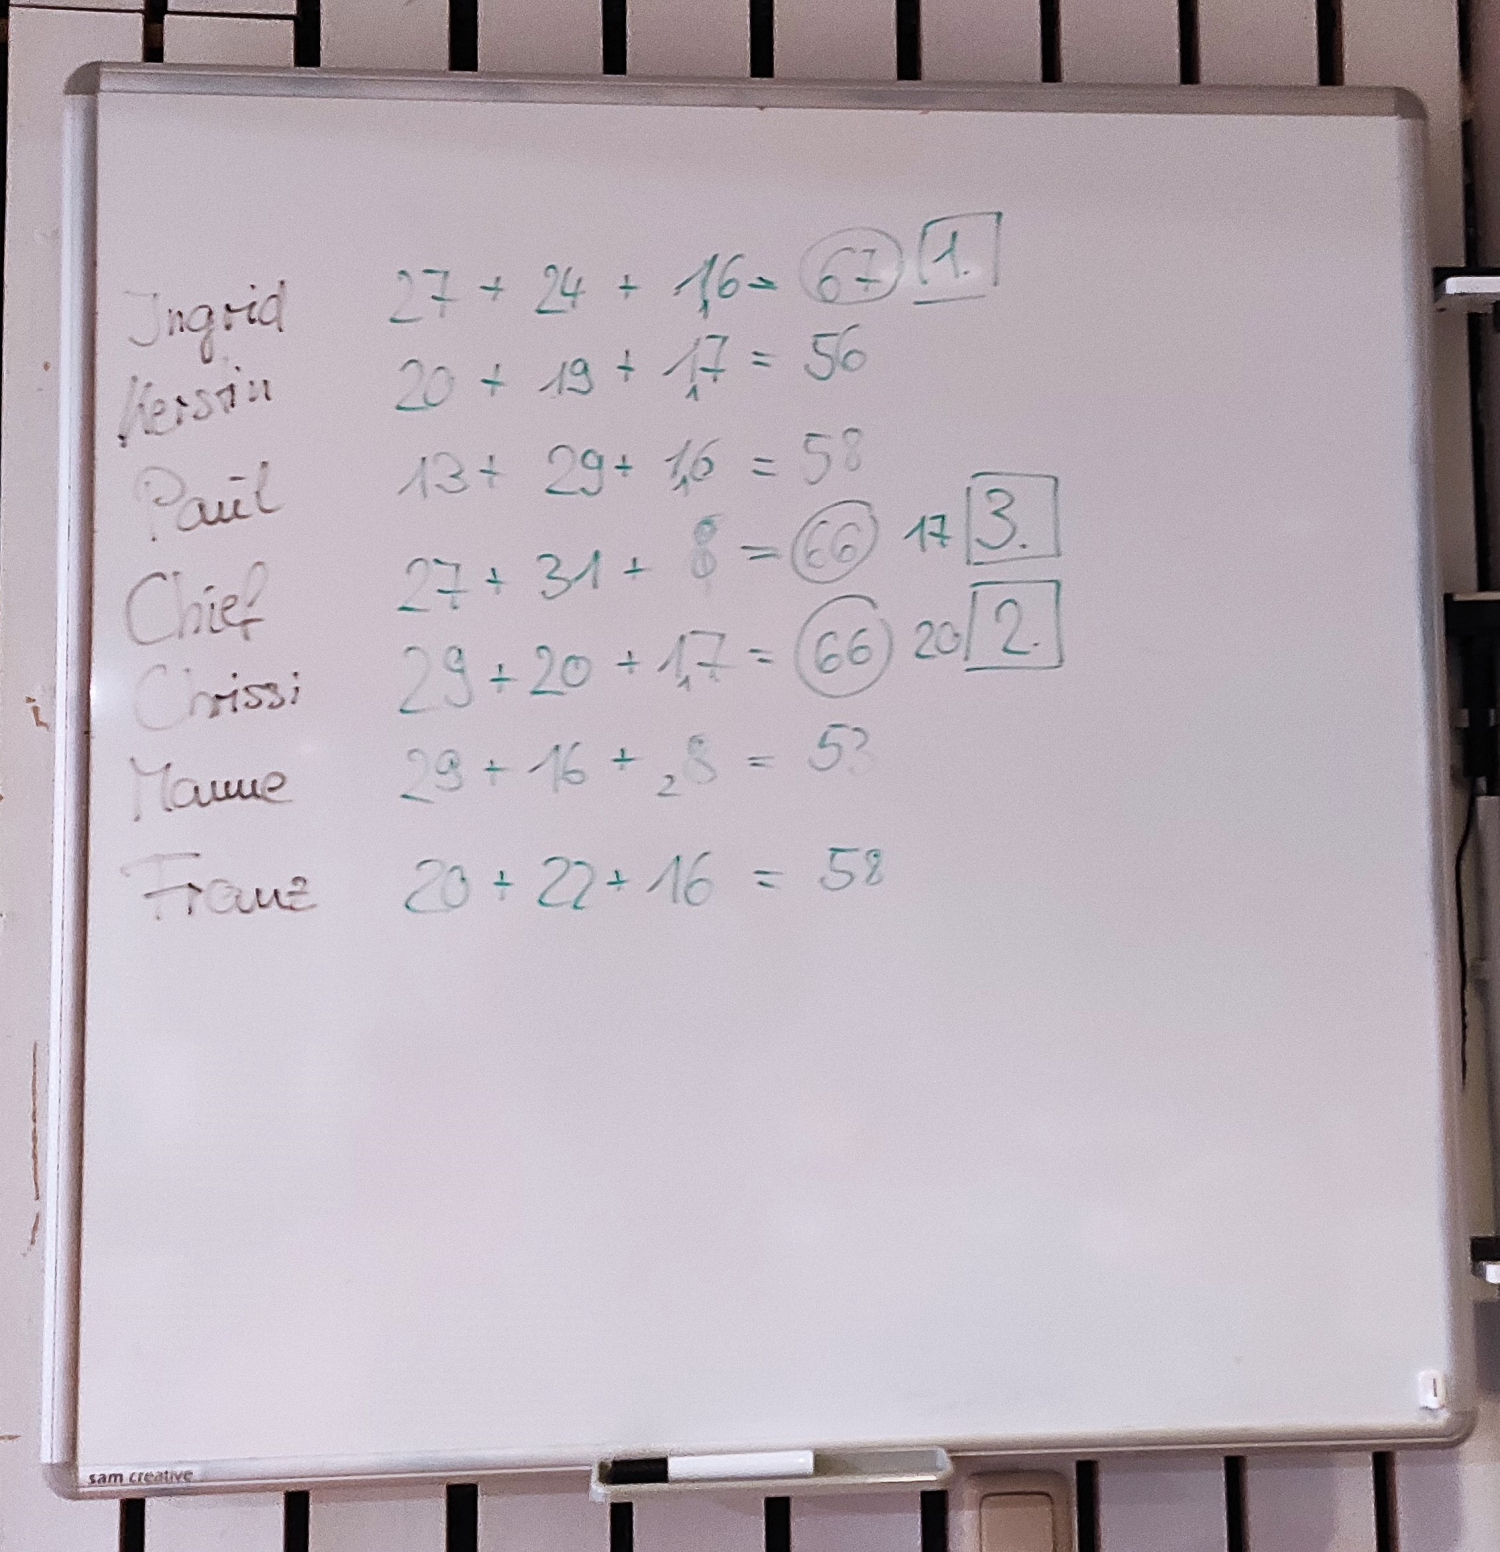 Ingrid 27 + 24 + 16 = 67 1.
Kerstin 20 + 19 + 17 = 56
Paul 13 + 29 + 16 = 58
Chief 27 + 31 + 8 = 66 17 3.
Chrissi 29 + 20 + 17 = 66 20 2.
Manne 29 + 16 + 8 = 53
Franz 20 + 22 + 16 = 58
sam creative